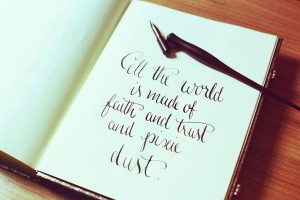 All the world
is made of
faith and trust
and pixie
dust.